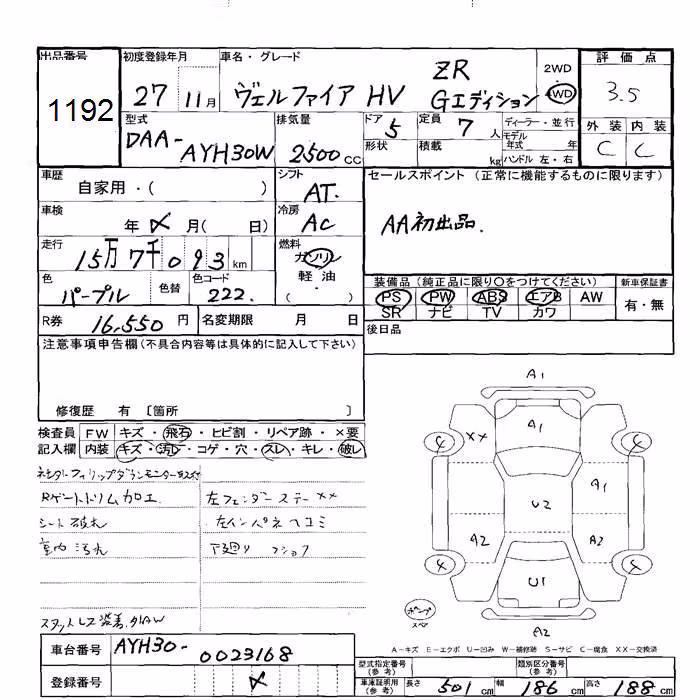 出品番号 初度登録年月 車名・グレード 評価点
1192 27 11月 ヴェルファイア HV ZR Gエディション 2WD 4WD 3.5
型式 排気量 ドア 定員 ディーラー・並行 外装 内装
DAA-AYH30W 2500CC 5 7人 モデル年式 年 C C
形状 積載 kg ハンドル 左・右
車歴 シフト セールスポイント (正常に機能するものに限ります)
自家用・( ) AT.
車検 冷房 AA初出品.
年 X 月( 日) AC
走行 燃料
15万7千093km ガソリン
色 色替 色コード 軽油 装備品 (純正品に限り○をつけてください) 新車保証書
パープル 222. ( ) PS PW ABS エアB AW 有・無
SR ナビ TV カワ
R券 16,550円 名変期限 月 日 後日品
注意事項申告欄(不具合内容等は具体的に記入して下さい)
修復歴 有 [箇所 ]
検査員 FW キズ・飛石・ヒビ割・リペア跡・×要
記入欄 内装 キズ・汚レ・コゲ・穴・スレ・キレ・破レ
Rゲートトリム加工 左フェンダーステー××
シート破れ 左インパネヘコミ
室内汚れ 下廻り
スタットレス装着.
A1
XX A1
4 4
A1
U2
A2 A2
4 4
U1
A2
A-キズ E-エクボ U-凹み W-補修跡 S-サビ C-腐食 XX-交換済
車台番号 AYH30-0023168 型式指定番号(参考) 類別区分番号(参考)
登録番号 X 車庫証明用(参考) 長さ 501cm 幅 186cm 高さ 188cm